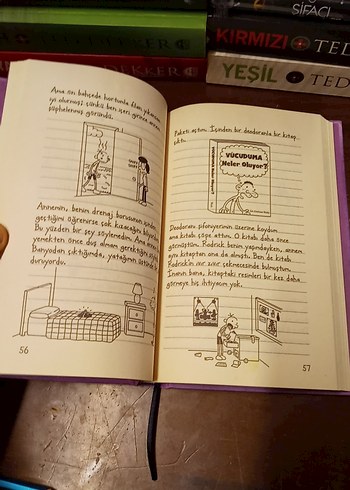 SİFACI
KIRMIZI TED
DEKKER
YEŞİL TED
Ama ön bahçede hortumla
iyi olurmuş çünkü ben içeri girince annem
şüphelenmiş göründü.
Annemin, benim drenaj borusunun içinden
geçtiğimi öğrenirse çok kızacağını
Bu yüzden bir şey söylemedim. Ama annem
yemekten önce duş almam gerektiğini
Banyodan çıktığımda, yatağımın üstünde
duruyordu.
56
Paketi açtım. İçinden bir deodorantla bir kitap
çıktı.
VÜCUDUMA
Neler Oluyor?
Deodorantı şifonyerimin üzerine koydum
ama kitabı çöpe attım. O kitabı daha önce
görmüştüm. Rodrick benim yaşımdayken, annem
aynı kitaptan ona da almıştı. Ben de kitabı
Rodrick'in çekmecesinde bulmuştum.
İnanın bana, kitaptaki resimleri bir kez daha
görmeye hiç ihtiyacım yok.
57